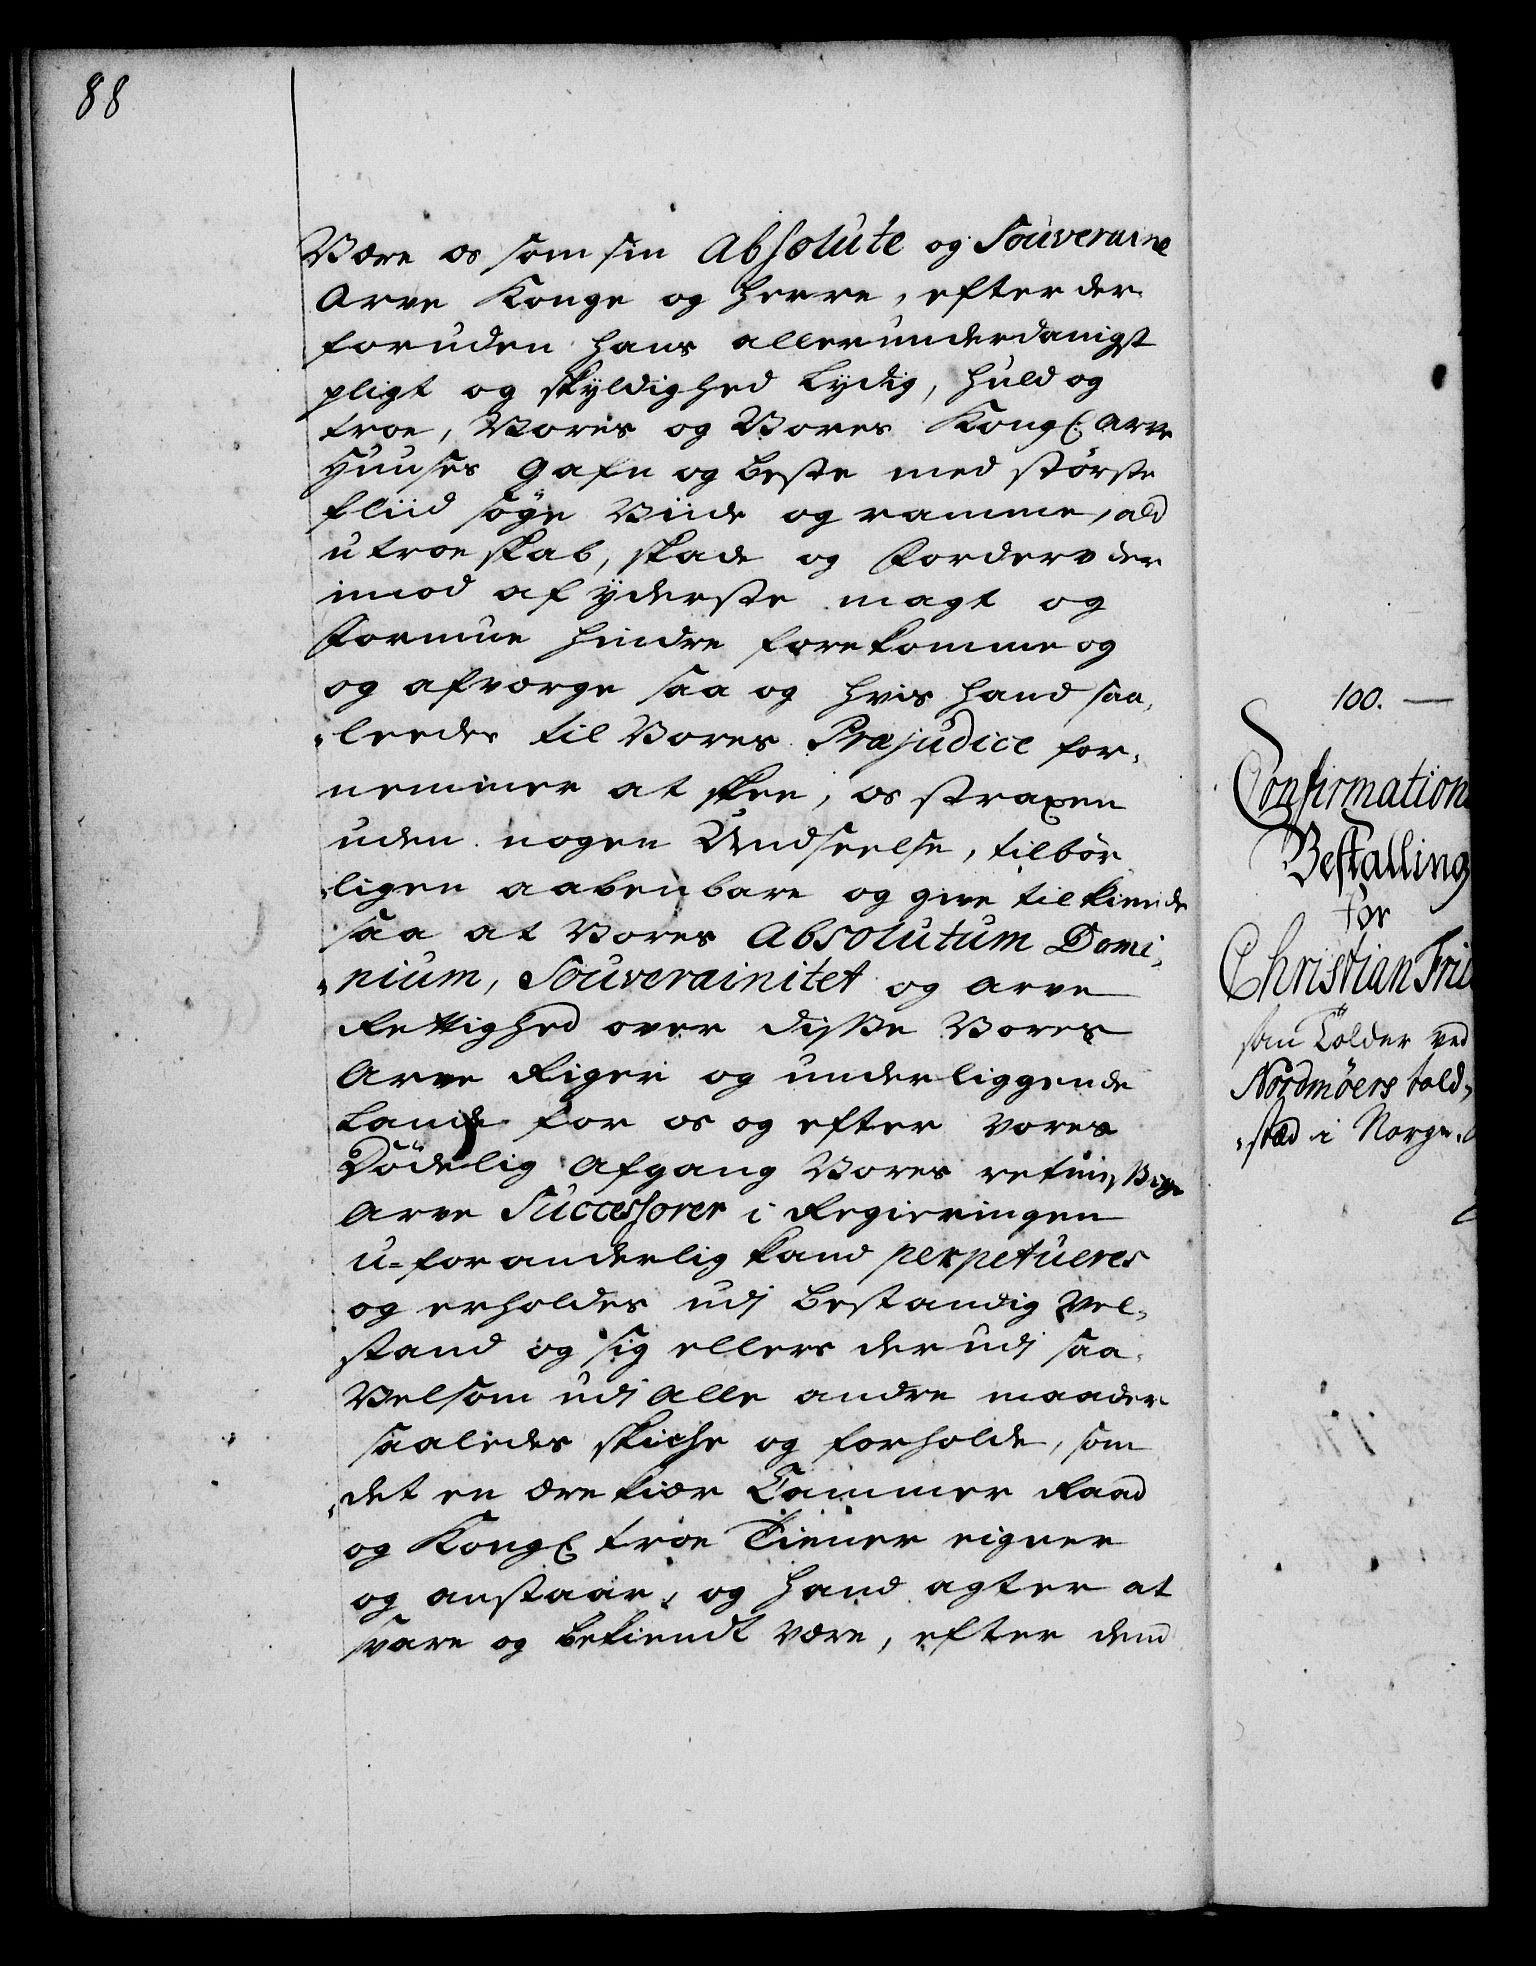 88
Være os som sin Absolute og Souveraine
Arve Konge og Herre, efter der
foruden hans allerunderdanigst
pligt og skyldighed Lydig, huld og
troe, Vores og Vores Kongl: Arve
Huuses Gafn og beste med största
fliid söge Viide og ramme, ald
utroeskab, skade og Forderv der
imod af ÿderste magt og
Formue hindre forekomme og
og afværge saa og hvis hand saa,
„leedes til Vores Præjudice for,
nemmer at skee, os straxen
uden nogen Undseelse, tilbör,
„ligen aabenbare og give tilkiende
saa at Vores Absolutum Domi,
„nium, Souverainitet og arve
Rettighed over disse Vores
Arve Riger og underliggende
Lande for os og efter vores
Dödelig Afgang Vores retmæssige
Arve Successorer i Regieringen
u=foranderlig kand perpetueres
og erholdes udj bestandig Vel,
stand og sig ellers derudj saa,
Velsom udj alle andre maader
saaledes skiche og forholde, som
„det en ærekiær Cammer Raad
og Kongl troe Tiener eigner
og anstaar, og hand agter at
svare og bekiendt være, efter dend
100. —
Confirmation
Bestalling
for
Christian Fri
som Tolder ved
Nordmöers told,
„stæd i Norge.